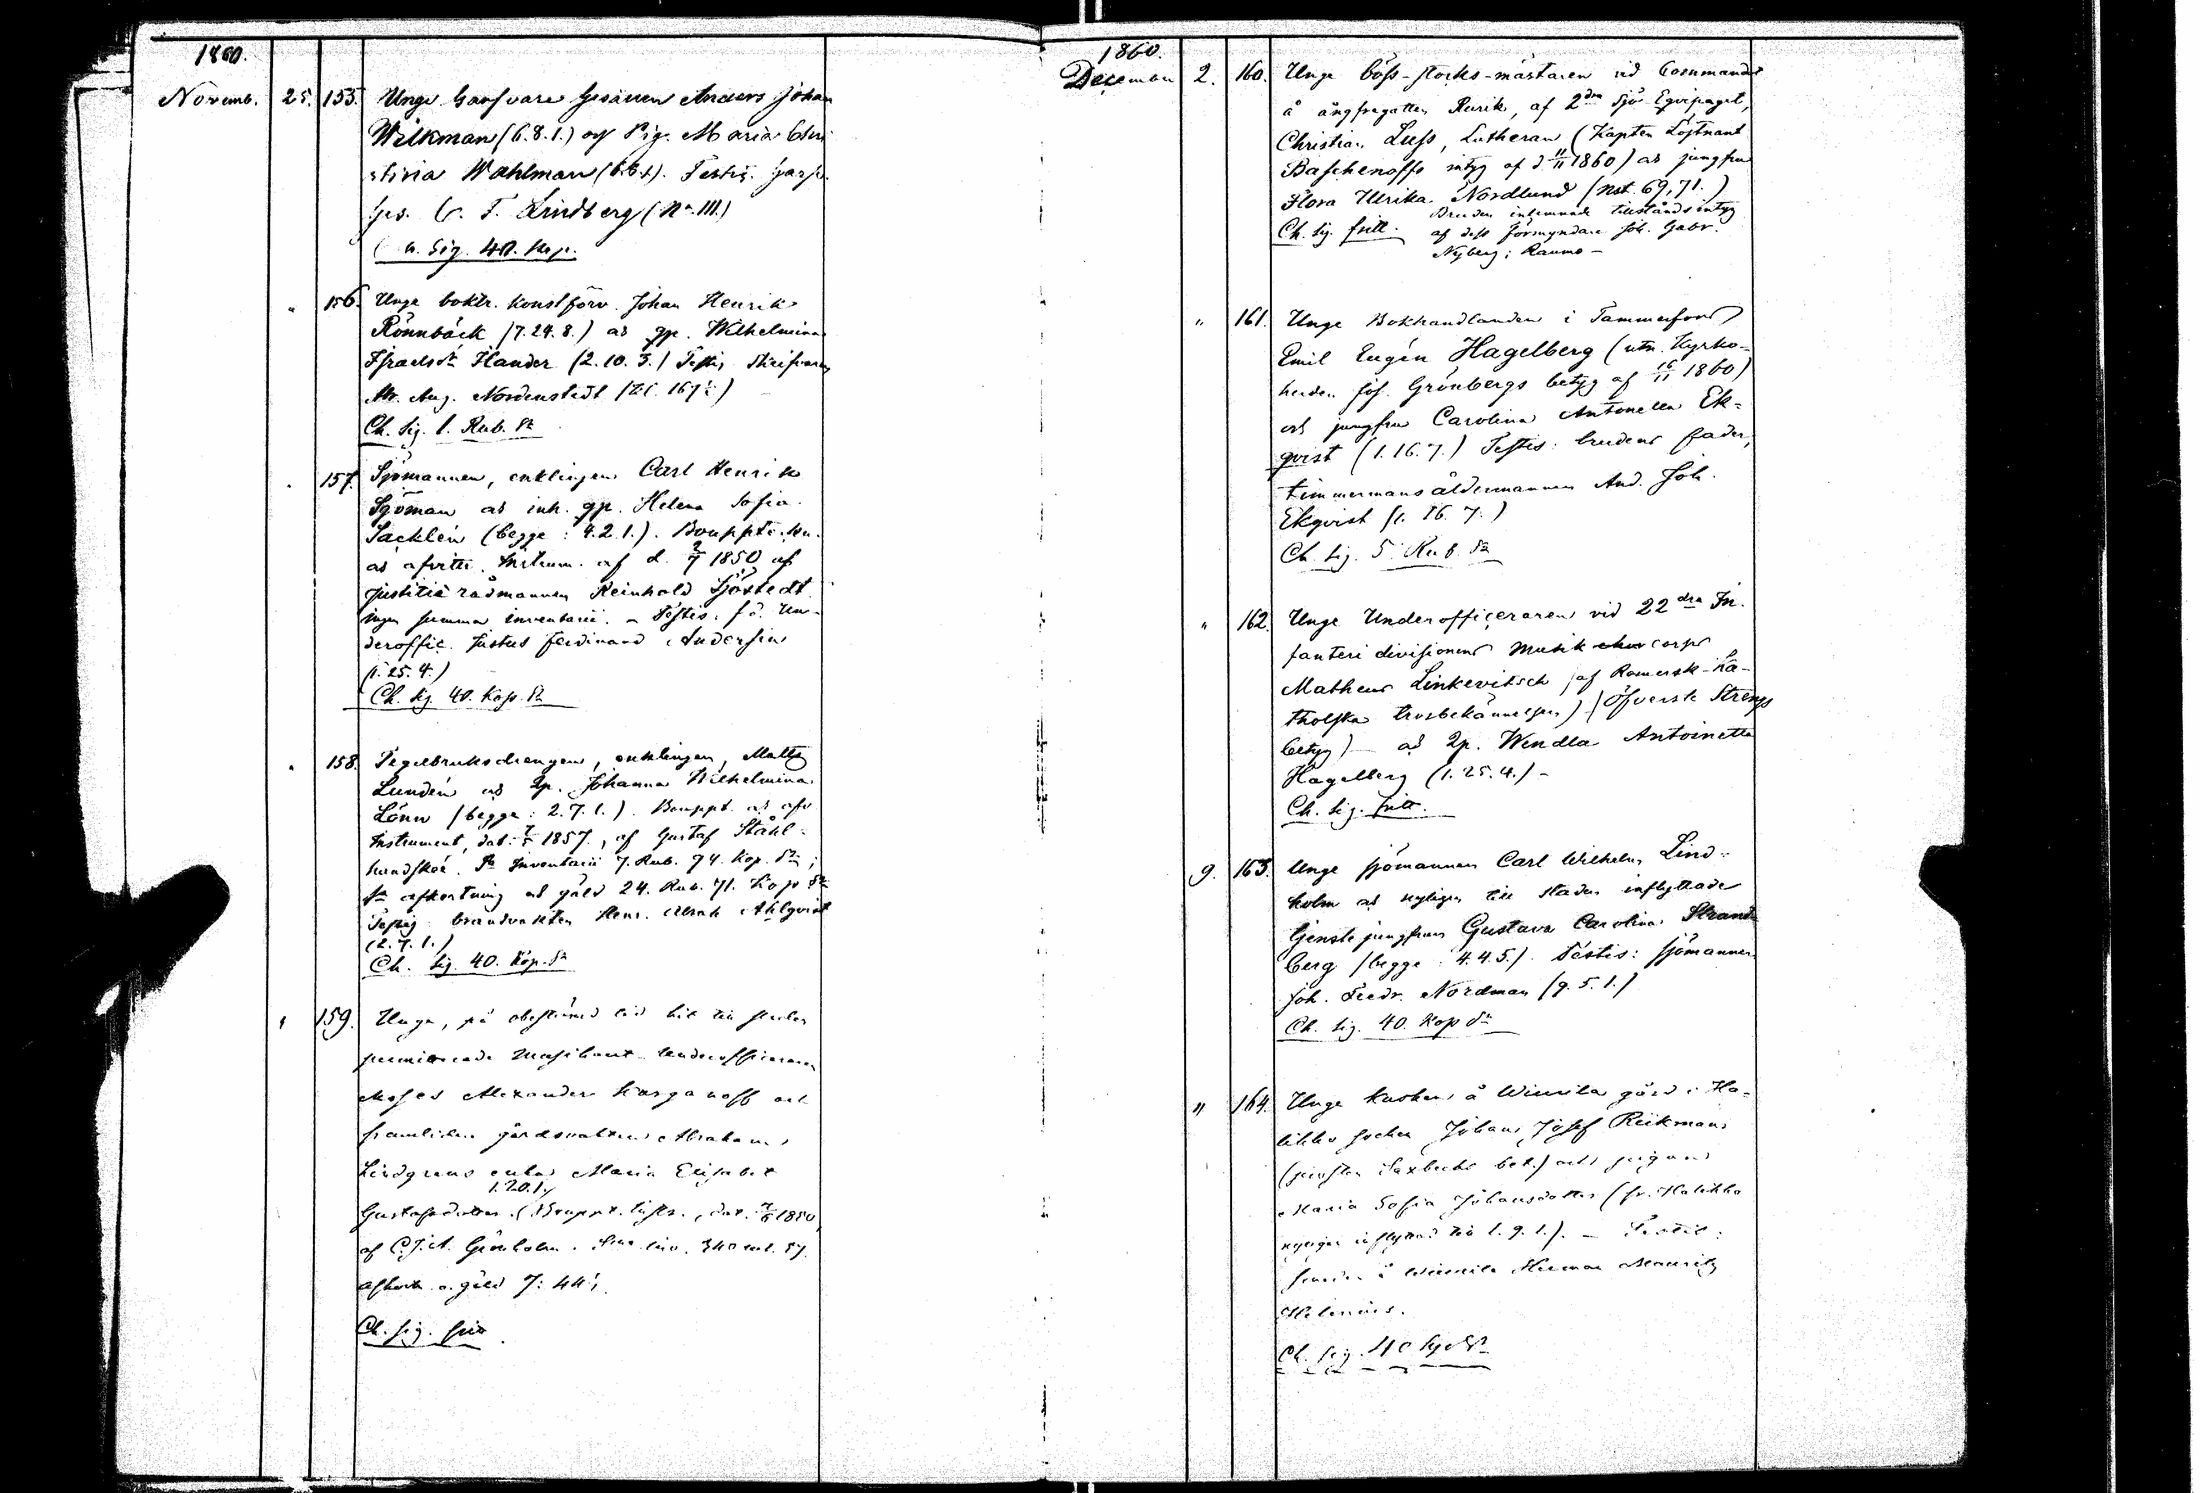 1860.
Novemb. 25. 155. Unge Garfvare Gesällen Anders Johan
Wilkman (6.8.1.) och Pig. Maria Chri
stina Wahlman (6.6.1). Testis: Garfv.
Ges. C. F. Lindberg (No. III.)
Ch. Sig. 40. Kop.
" 156. Unge boktr. konstförv. Johan Henrik
Rönnbäck (7.24.8.) ad gp. Wilhelmina
Israelsdr Flander (2.10.3.) Testis
Mr. Aug. Nordenstedt
Ch. Sig. 1. Rub. Sr
" 157. Sjömannen, enklingen Carl Henrik
Sjöman ad inh. gp. Helena Sofia
Sacklén (begge: 4.2.1.). Bouppt.
ad afvittr. Instrum. af d. 1850 af
justitiæ rådmannen Reinhold Sjöstedt
ingen summa inventarii. – Testis: f.d. Un-
deroffic. Justus Ferdinand Andersin
(1.25.4.)
Ch. Sig. 40. Kop. Sr
" 158. Tegelbruksdrengen, enklingen, Matts
Lundén ad Qp. Johanna Wilhelmina
Lönn (begge: 2.7.1.). Bouppt. ad afv
Instrument, dat. 1857, af Gustaf Stål-
handske. Sa Inventarii 7. Rub. 94. Kop. Sr;
Sa afkortning ad gäld 24. Rub. 71. Kop Sr
Testis: brandvakten Henr. Abrah Ahlqvist
(2.7.1.)
Ch. Sig. 40. Kop. Sr
" 159. Unge, på obestämd tid hit till staden
permitterade Musikant underofficeraren
Moses Alexander Karganoff och
framlidne gårdsvakten Abraham
Lindgrens enka Maria Elisabet
1.20.1.
Gustafsdotter. (Bouppt. dat. 1850
af C.J.A. Grönholm.
afkort. o. gäld 7: 44
Ch. sig. fritt
1860.
December 2. 160. Unge böss-stocks-mästaren vid Commando
å ångfregatten Rurik, af 2dra Sjö Eqvipaget,
Christian Luss, Lutheran (Kapten Löjtnant
Baschenoffs intyg af d. 11/11 1860) ad jungfru
Flora Ulrika Nordlund (Nst. 69,71.)
Bruden inlemnade tillståndsintyg
Ch. Sig. fritt. af dess förmyndare Joh. Gabr.
Nyberg i Raumo –
" 161. Unge Bokhandlanden i Tammerfors
Emil Eugén Hagelberg (utn. Kyrko-
herden Jos. Grönbergs betyg af 16/11 1860)
och jungfru Carolina Antonetta Ek-
qvist (1.16.7.) Testis: brudens fader,
timmermansåldermannen And. Joh.
Ekqvist (1.16.7.)
Ch. Sig. 5 Rub. Sr
" 162. Unge Underofficeraren vid 22dra In-
fanteri divisionens Musik corps
Matheus Linkevitsch (af Romersk-Ka-
tholska trosbekännelsen) (Öfverste Strengs
betyg) – ad Qp. Wendla Antoinetta
Hagelberg (1.25.4.) –
Ch. Sig. fritt.
9. 163. Unge sjömannen Carl Wilhelm Lind-
holm ad nyligen till staden inflyttade
tjenstejungfrun Gustava Carolina Strand
berg (begge: 4.4.5.). Testis: sjömannen
Joh. Fredr. Nordman (9.5.1.)
Ch. Sig. 40. Kop Sr
" 164. Unge kusken å Wiurila gård i Ha-
likko socken Johan Josef Riikman
(prosten Saxbecks bet.) och pigan
Maria Sofia Johansdotter (fr. Halikko
nyligen inflyttad till 1.9.1.). – Testis:
å Wiurila Herman Mauritz
Helenius.
Ch. sig. 40 kop Sr